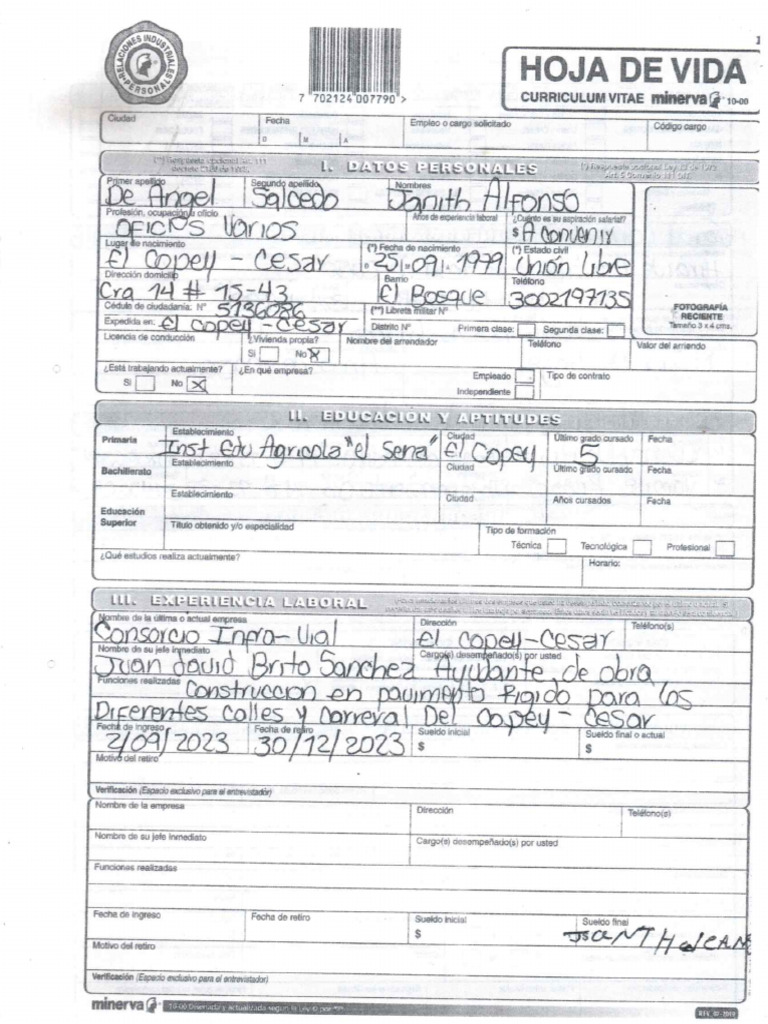 RELACIONES INDUSTRIALES
PERSONALES
7 702124 007790 >
HOJA DE VIDA
CURRICULUM VITAE minerva 10-00
Ciudad Fecha Empleo o cargo solicitado Código cargo
D M A
I. DATOS PERSONALES
Primer apellido Segundo apellido Nombres
De Angel Salcedo Janith Alfonso
Profesión, ocupación u oficio Años de experiencia laboral ¿Cuánto es su aspiración salarial?
OFICIOS Varios $ A Convenir
Lugar de nacimiento (*) Fecha de nacimiento (*) Estado civil
El Copey - Cesar 25 09 1979 Unión Libre
Dirección domicilio Barrio Teléfono
Cra 14 # 15-43 El Bosque 3002197135
Cédula de ciudadanía: N° 5136086 (**) Libreta militar N°
FOTOGRAFÍA
RECIENTE
Tamaño 3 x 4 cms.
Expedida en: el copey - Cesar Distrito N° Primera clase: Segunda clase:
Licencia de conducción ¿Vivienda propia? Nombre del arrendador Teléfono Valor del arriendo
Si No X
¿Está trabajando actualmente? ¿En qué empresa? Empleado Tipo de contrato
Si No X Independiente
II. EDUCACIÓN Y APTITUDES
Primaria Establecimiento Ciudad Último grado cursado Fecha
Inst Edu Agricola "el Sena" El Copey 5
Bachillerato Establecimiento Ciudad Último grado cursado Fecha
Establecimiento Ciudad Años cursados Fecha
Educación
Superior Título obtenido y/o especialidad Tipo de formación
Técnica Tecnológica Profesional
¿Qué estudios realiza actualmente? Horario:
III. EXPERIENCIA LABORAL
Nombre de la última o actual empresa Dirección Teléfono(s)
Consorcio Infra-Vial el Copey-Cesar
Nombre de su jefe inmediato Cargo(s) desempeñado(s) por usted
Juan david Brito Sanchez Ayudante de obra
Funciones realizadas Construccion en pavimento Rigido para los
Diferentes calles y carreral Del Copey - Cesar
Fecha de ingreso Fecha de retiro Sueldo inicial Sueldo final o actual
2/09/2023 30/12/2023 $ $
Motivo del retiro
Verificación (Espacio exclusivo para el entrevistador)
Nombre de la empresa Dirección Teléfono(s)
Nombre de su jefe inmediato Cargo(s) desempeñado(s) por usted
Funciones realizadas
Fecha de ingreso Fecha de retiro Sueldo inicial Sueldo final
$
Motivo del retiro
Verificación (Espacio exclusivo para el entrevistador)
minerva 10-00